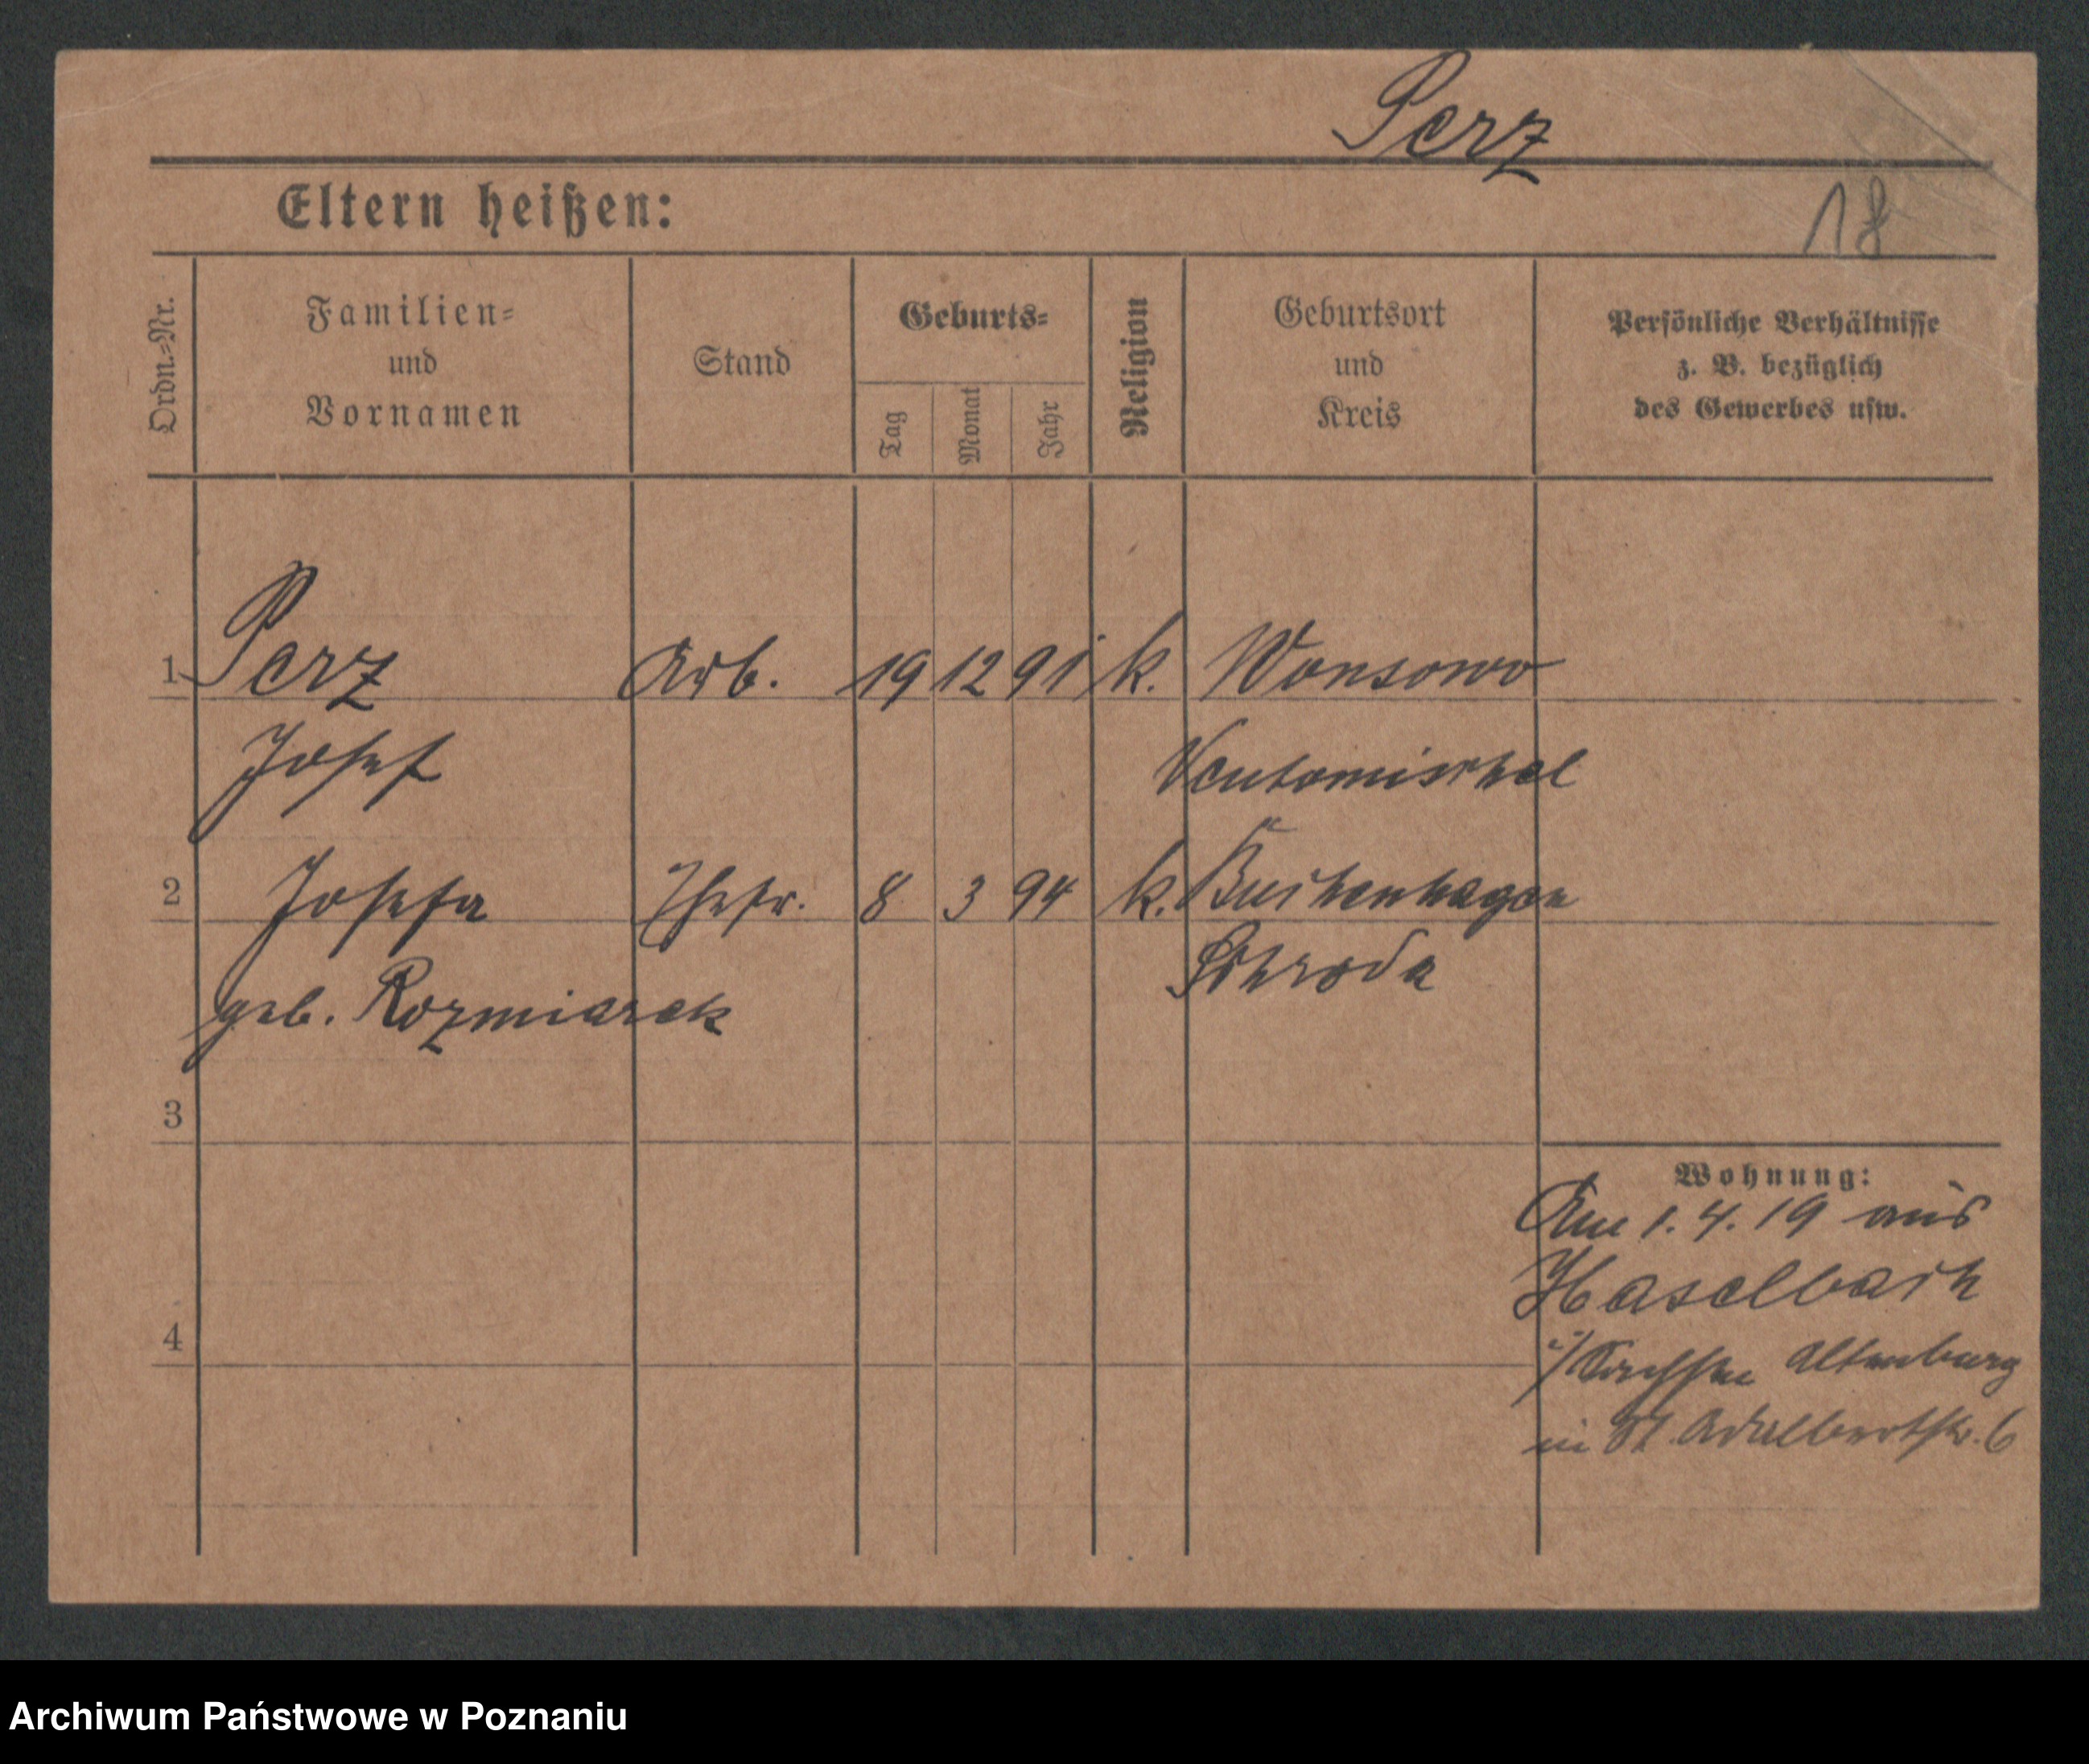 Perz
Eltern heißen:
18
Ordn.-Nr.
Familien-
und
Vornamen
Stand
Geburts-
Tag
Monat
Jahr
Religion
Geburtsort
und
Kreis
Persönliche Verhältnisse
z. B. bezüglich
des Gewerbes usw.
1 Perz Arb. 19 12 91 k. Wonsowo
Josef Neutomischel
2 Josefa Ehefr. 8 3 94 k. Buchenhagen
Schroda
geb. Rozmiarek
3
Wohnung:
Am 1. 4. 19 aus
Haselbach
4
i/Sachsen Altenburg
in St. Adalbertstr. 6
Archiwum Państwowe w Poznaniu